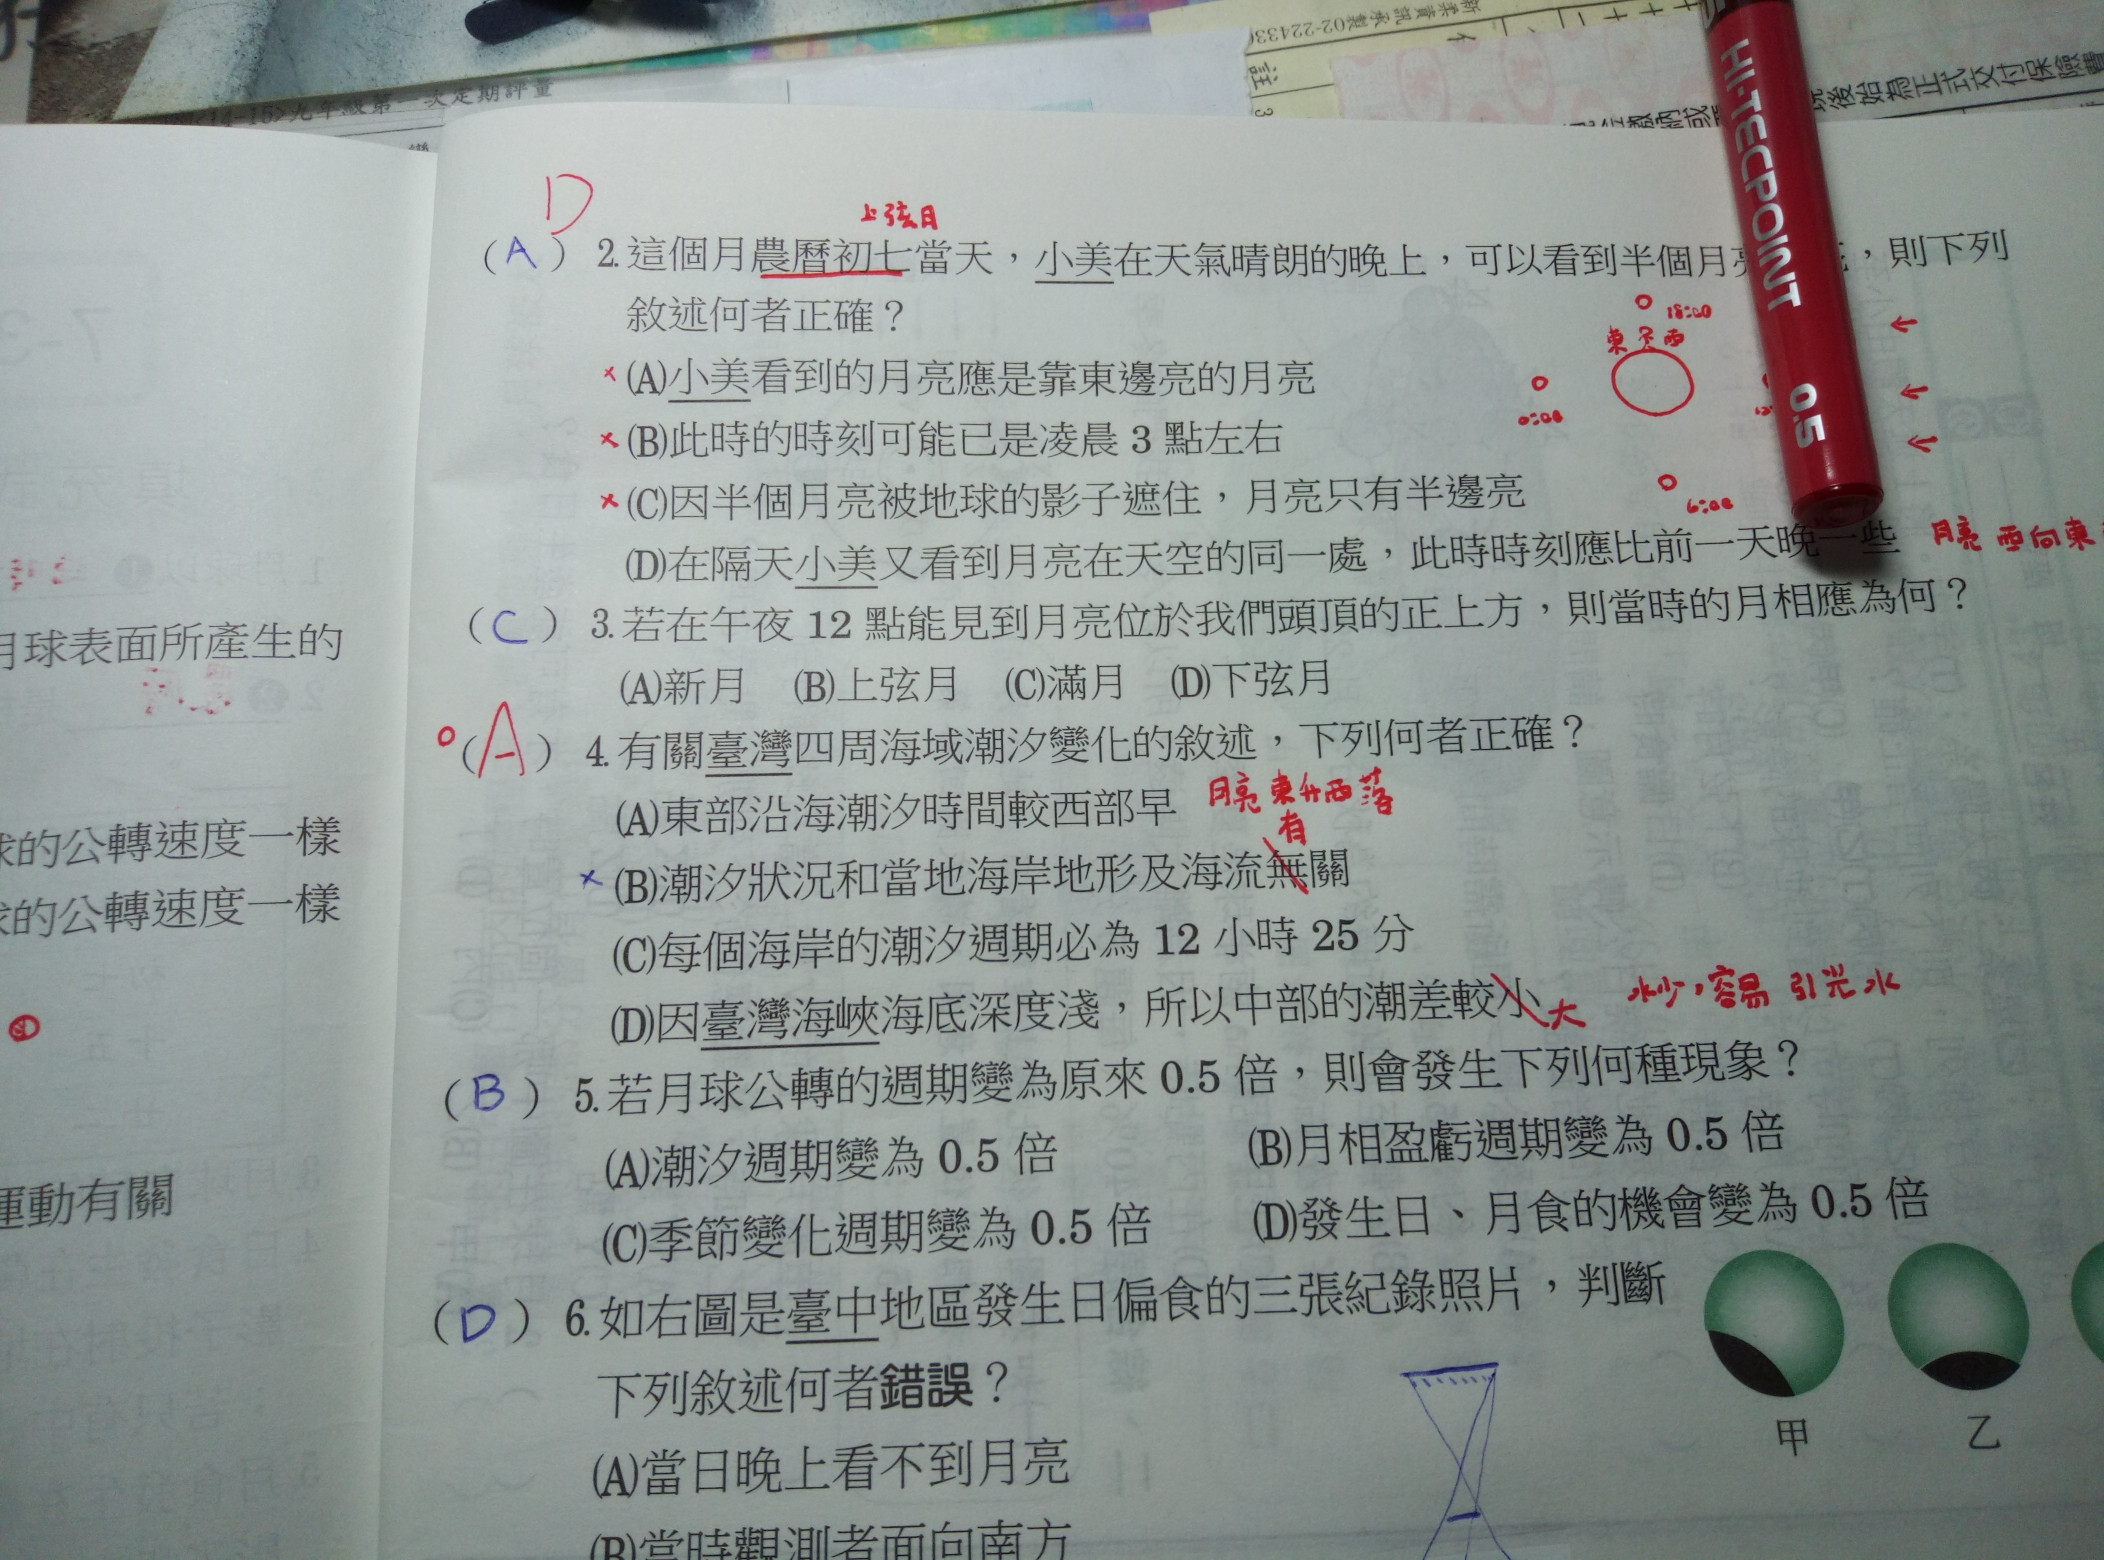 <14-15>九年級第一次定期評量
新業資訊承製02-22433
註
3
現後始為正式交付保險費
HI-TECPOINT 0.5
D
上弦月
(A) 2.這個月農曆初七當天，小美在天氣晴朗的晚上，可以看到半個月，則下列
敘述何者正確？
18:00
東 西
×(A)小美看到的月亮應是靠東邊亮的月亮
0:00
×(B)此時的時刻可能已是凌晨 3 點左右
×(C)因半個月亮被地球的影子遮住，月亮只有半邊亮
6:00
(D)在隔天小美又看到月亮在天空的同一處，此時時刻應比前一天晚一些
月亮 西向東
(C) 3.若在午夜 12 點能見到月亮位於我們頭頂的正上方，則當時的月相應為何？
(A)新月 (B)上弦月 (C)滿月 (D)下弦月
(A) 4.有關臺灣四周海域潮汐變化的敘述，下列何者正確？
(A)東部沿海潮汐時間較西部早 月亮東升西落
有
×(B)潮汐狀況和當地海岸地形及海流無關
(C)每個海岸的潮汐週期必為 12 小時 25 分
(D)因臺灣海峽海底深度淺，所以中部的潮差較小 大 水少，容易 引 水
(B) 5.若月球公轉的週期變為原來 0.5 倍，則會發生下列何種現象？
(A)潮汐週期變為 0.5 倍 (B)月相盈虧週期變為 0.5 倍
(C)季節變化週期變為 0.5 倍 (D)發生日、月食的機會變為 0.5 倍
(D) 6.如右圖是臺中地區發生日偏食的三張紀錄照片，判斷
下列敘述何者錯誤？
甲 乙
(A)當日晚上看不到月亮
(B)當時觀測者面向南方
7-3
月球表面所產生的
球的公轉速度一樣
球的公轉速度一樣
運動有關